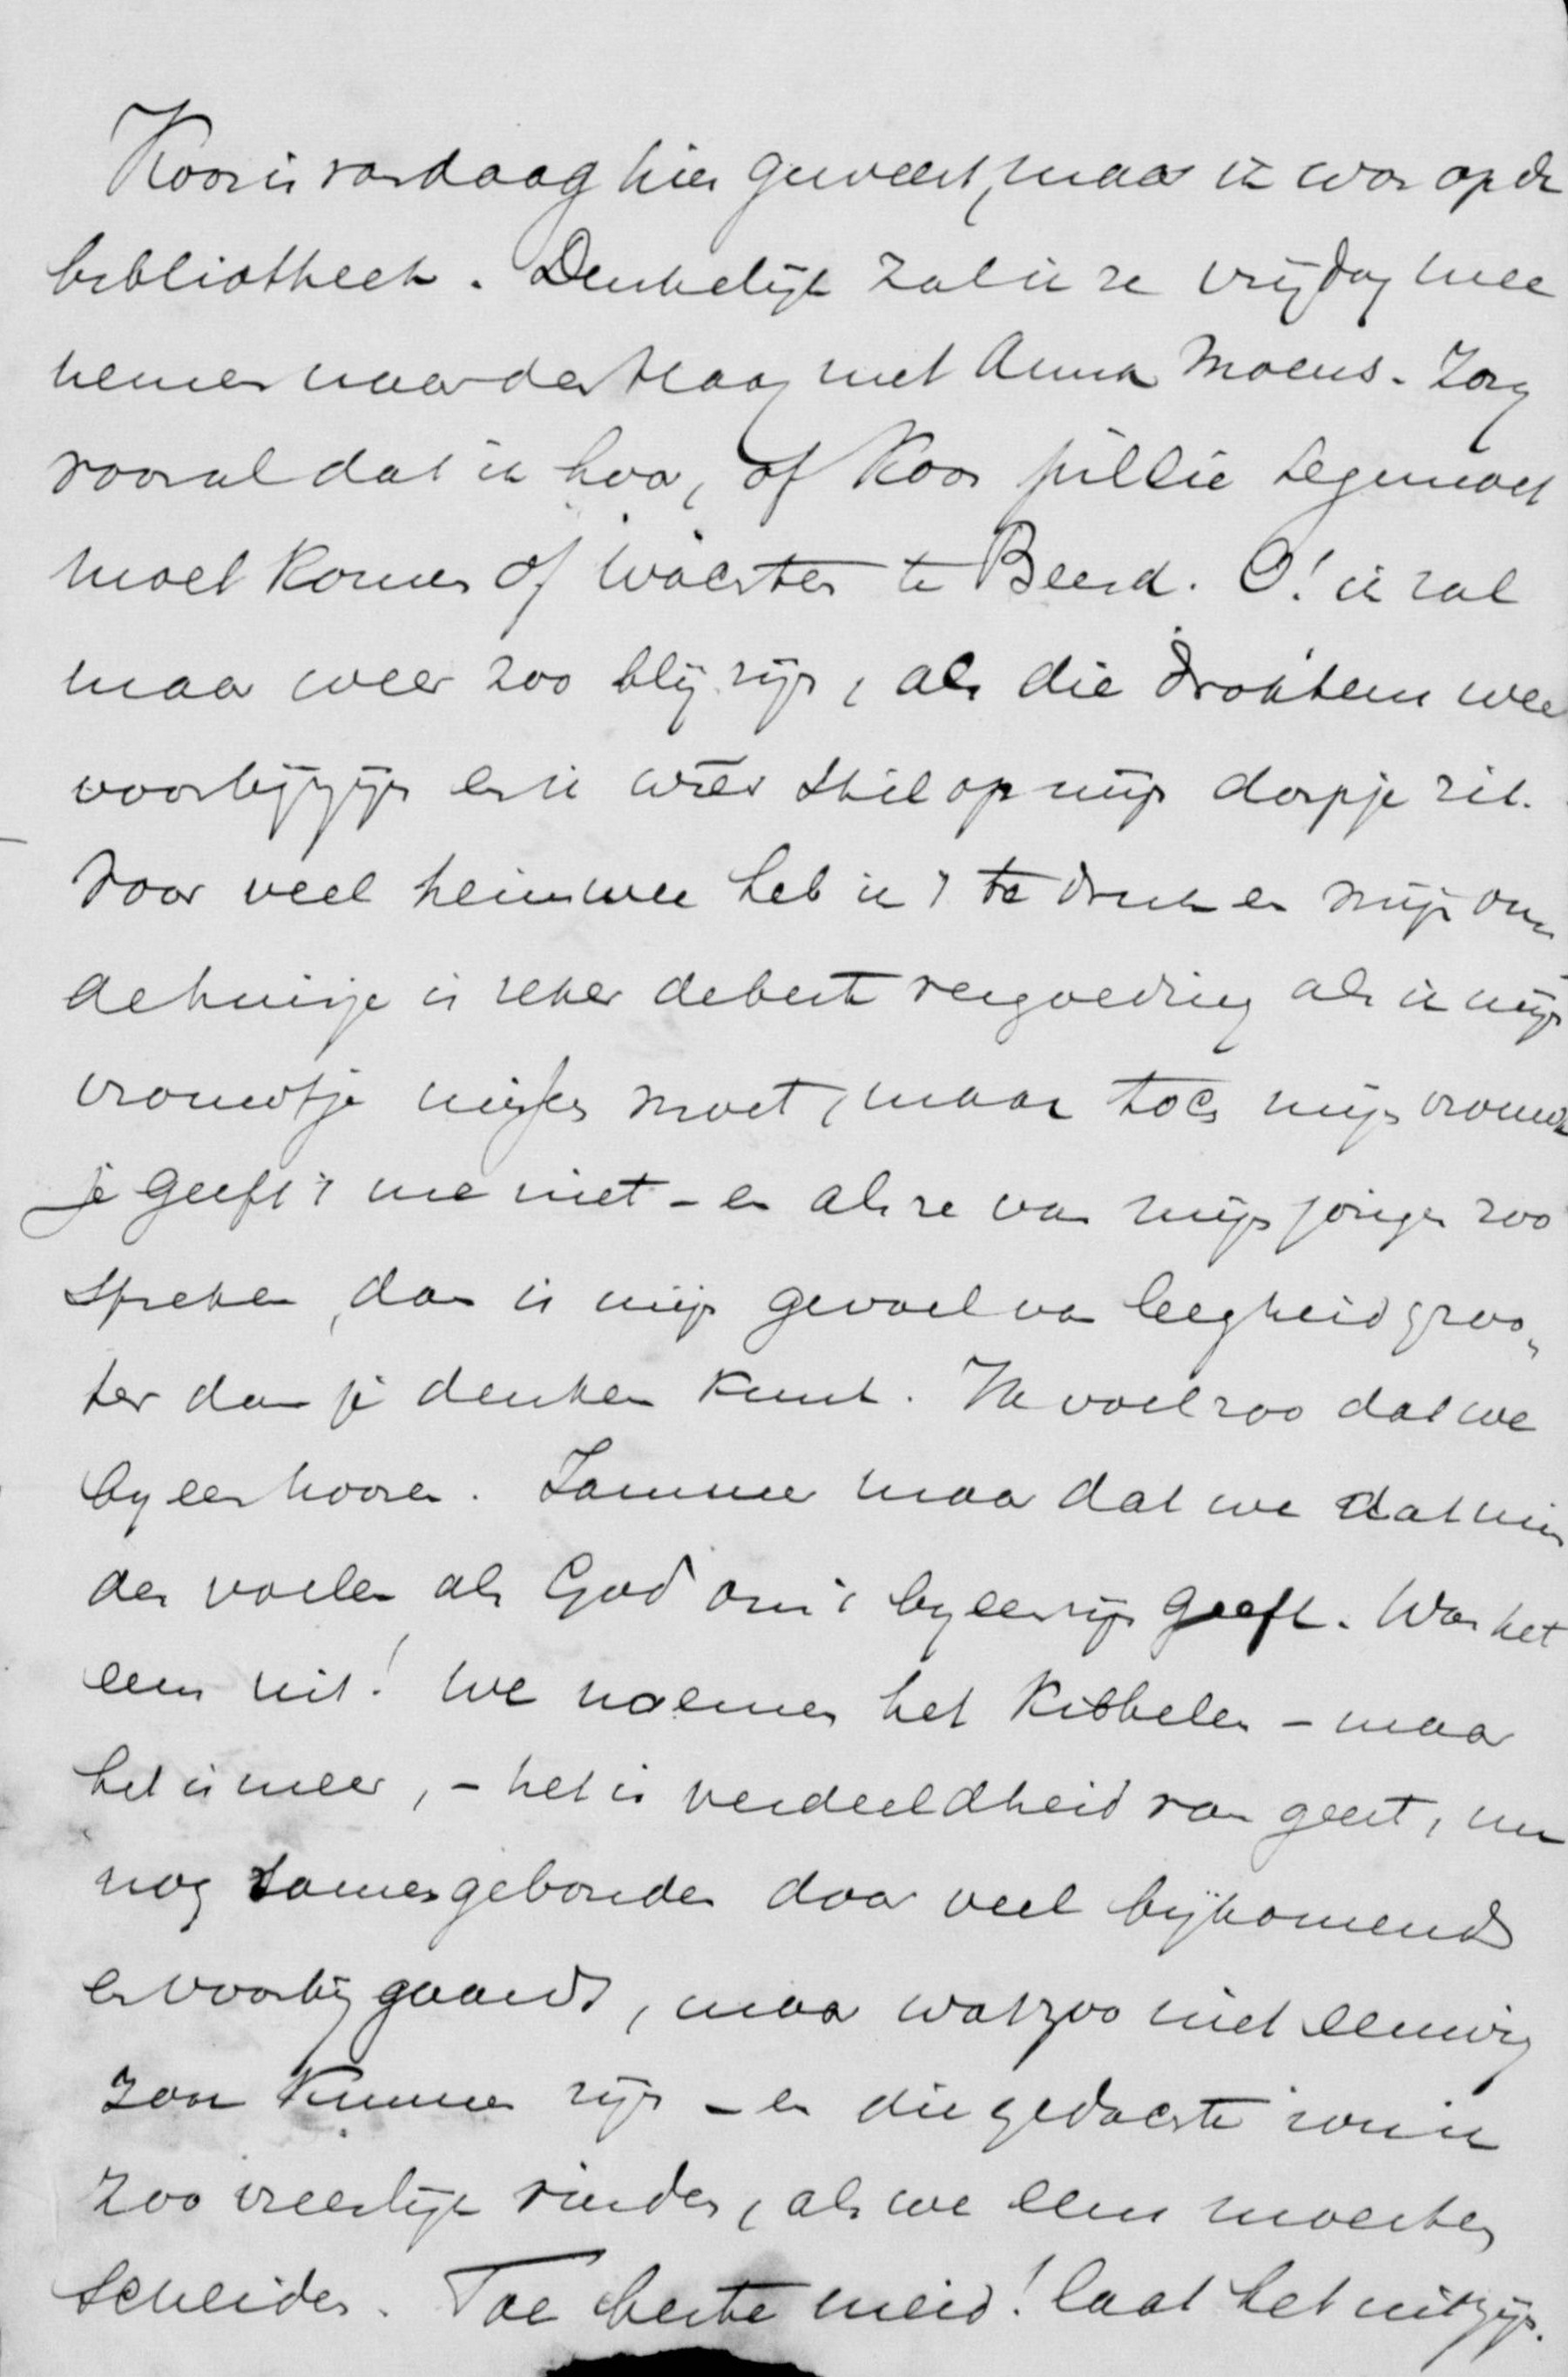 Koos is vandaag hier geweest, maar ik was op de
bibliotheek. Denkelijk zal ik ze vrijdag mee
nemen naar den Haag met Anna Moens. Zorg
vooral dat ik hoor, of Koos jullie tegemoet
moet komen of wachten te Beesd. O! ik zal
maar weer zoo blij zijn, als die drukten weer
voorbij zijn en ik weer stil op mijn dorpje zit.
Voor veel heimwee heb ik 't te druk en mijn ou
de huisje is zeker de beste vergoeding als ik mijn
vrouwtje missen moet, maar toch mijn vrouwt
je geeft 't me niet - en als ze van mijn jongen zoo
spreken, dan is mijn gevoel van leegheid groo„
ter dan je denken kunt. Ik voel zoo dat we
byeen hooren. Jammer maar dat we dat min
der voelen als God ons 't byeen zijn geeft. Was het
eens uit! We noemen het kibbelen - maar
het is meer, - het is verdeeldheid van geest, nu
nog samengebonden door veel bijkomends
en voorbijgaands, maar wat zoo niet eeuwig
zou kunnen zijn - en die gedachte zou ik
zoo vreeslijk vinden, als we eens moesten
scheiden. Toe beste meid! laat het uit zijn.